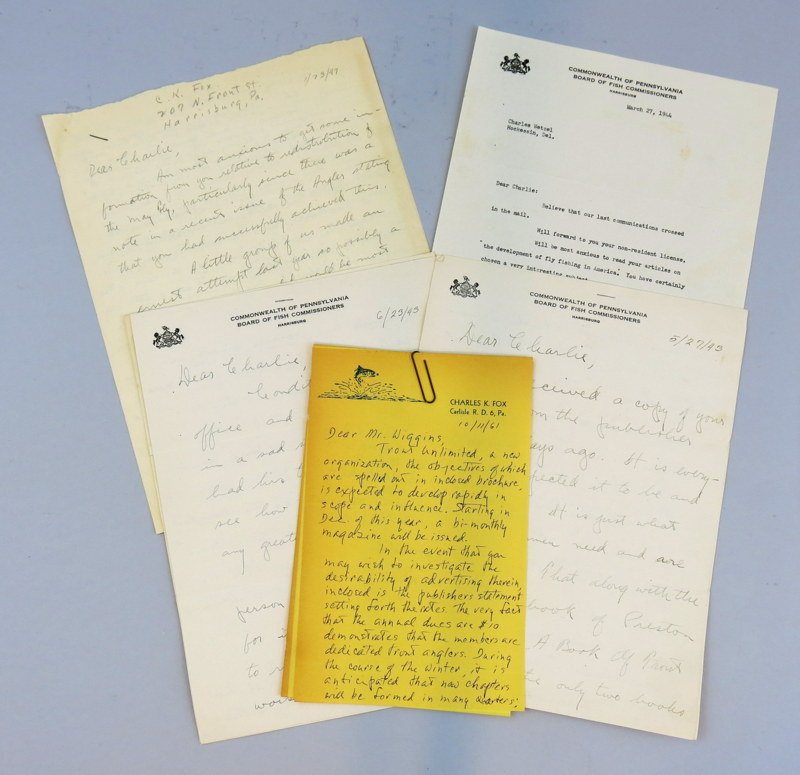 C. K. Fox
209 N. Front St.
Harrisburg, Pa.
1/23/47
Dear Charlie,
Am most anxious to get some in-
formation from you relative to redistribution of
the may fly, particularly since there was a
note in a recent issue of the Angler stating
that you had successfully achieved this.
A little group of us made an
earnest attempt last year so possibly a
will be most
COMMONWEALTH OF PENNSYLVANIA
BOARD OF FISH COMMISSIONERS
HARRISBURG
March 27, 1944
Charles Wetzel
Hockessin, Del.
Dear Charlie:
Believe that our last communications crossed
in the mail.
Will forward to you your non-resident license.
Will be most anxious to read your articles on
the development of fly fishing in America. You have certainly
chosen a very interesting subject
COMMONWEALTH OF PENNSYLVANIA
BOARD OF FISH COMMISSIONERS
HARRISBURG
6/23/43
Dear Charlie,
office and
in a sad
had his
see how
any great
person
for i
to r
COMMONWEALTH OF PENNSYLVANIA
BOARD OF FISH COMMISSIONERS
HARRISBURG
5/27/43
Dear Charlie,
ceived a copy of your
om the publisher
days ago. It is every-
pected it to be and
It is just what
need and are
That along with the
book of Preston
A Book Of Trout
the only two books
CHARLES K. FOX
Carlisle R. D. 6, Pa.
10/11/61
Dear Mr. Wiggins,
Trout Unlimited, a new
organization, the objectives of which
are spelled out in inclosed brochure,
is expected to develop rapidly in
scope and influence. Starting in
Dec. of this year, a bi-monthly
magazine will be issued.
In the event that you
may wish to investigate the
desirability of advertising therein,
inclosed is the publishers statement
setting forth the rates. The very fact
that the annual dues are $10
demonstrates that the members are
dedicated trout anglers. During
the course of the winter, it is
anticipated that new chapters
will be formed in many quarters;